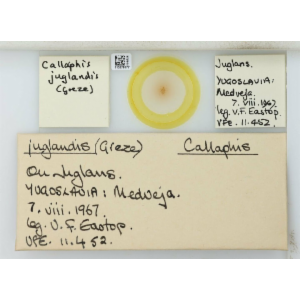 Callaphis
juglandis
(Greze)
Juglans.
YUGOSLAVIA:
Medveja.
7. viii. 1967.
leg. V.F. Eastop.
VFE. 11.452.
juglandis (Greze) Callaphis
On Juglans.
YUGOSLAVIA: Medveja.
7. viii. 1967.
leg. V.F. Eastop.
VFE. 11.452.